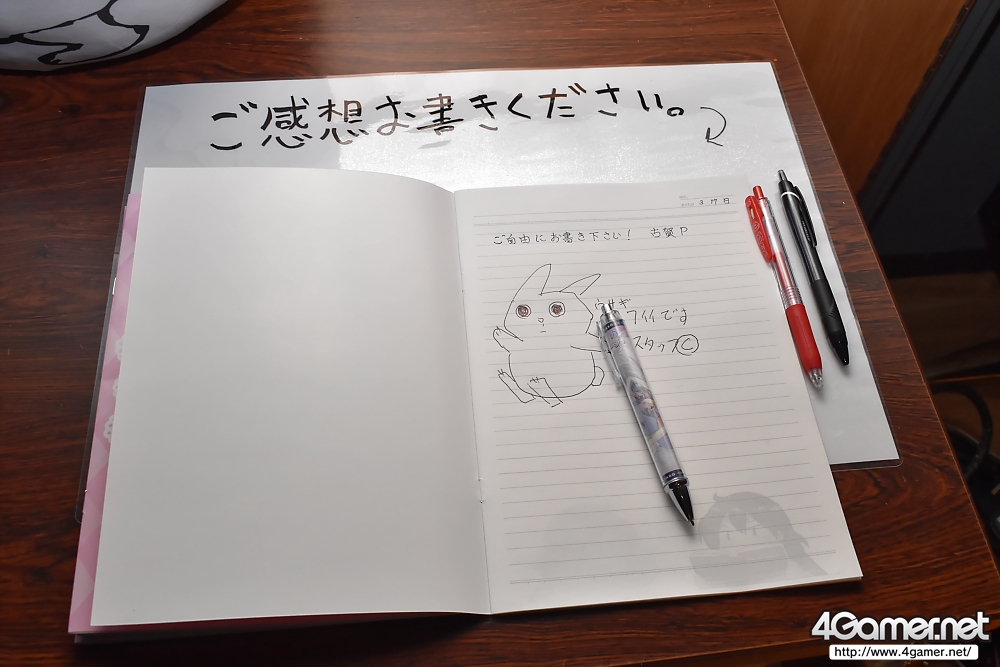 ご感想お書きください。
3 17 日
ご自由にお書き下さい! 古賀P
ウサギ
です
スタッフⒸ
4Gamer.net
http://www.4gamer.net/